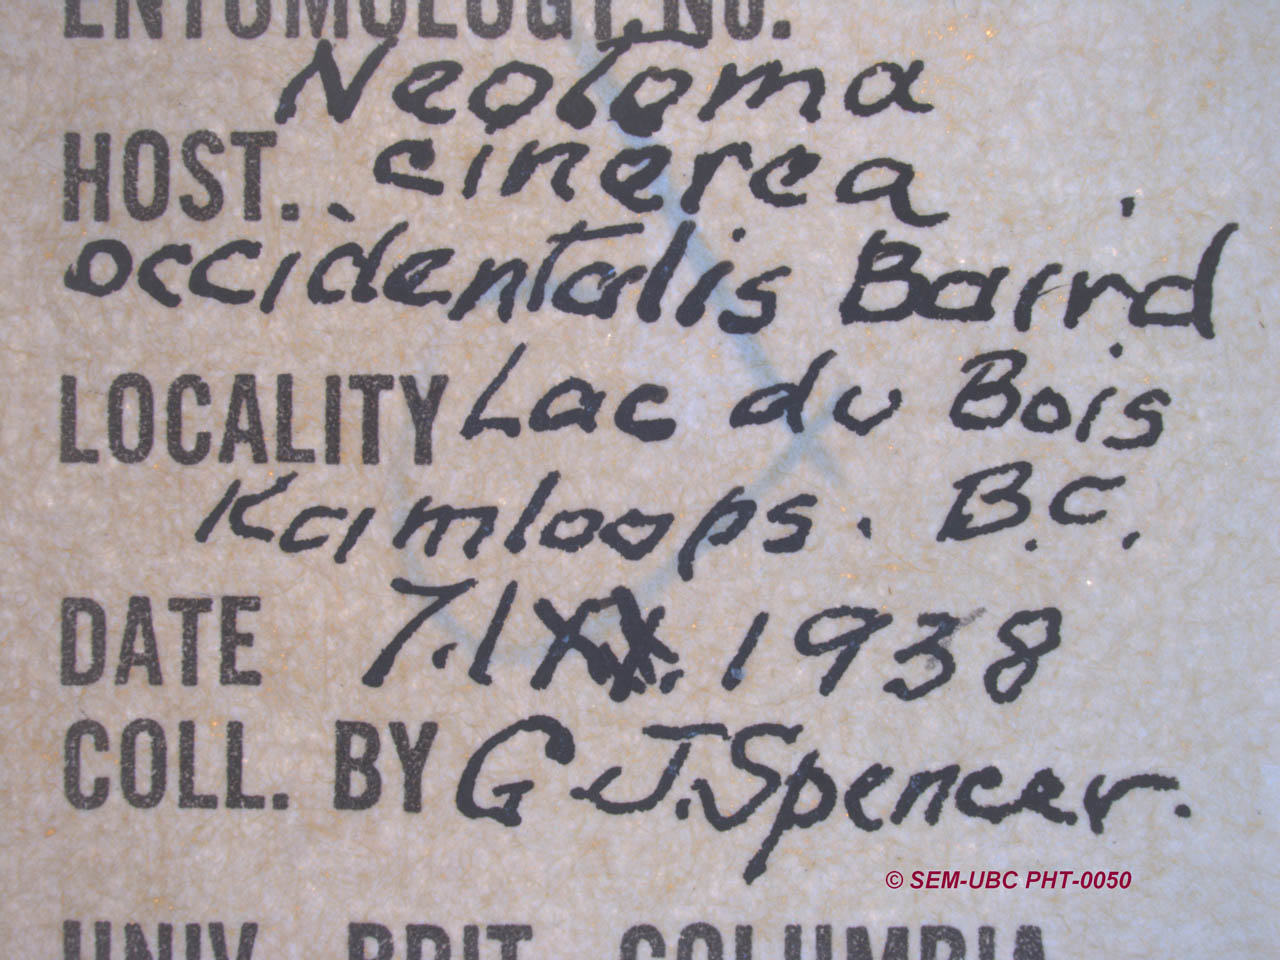 ENTOMOLOGY NO.
Neotoma
HOST. cinerea
occidentalis Baird
LOCALITY Lac du Bois
Kamloops. B.C.
DATE 7.IX. 1938
COLL. BY G J. Spencer.
© SEM-UBC PHT-0050
UNIV. BRIT. COLUMBIA